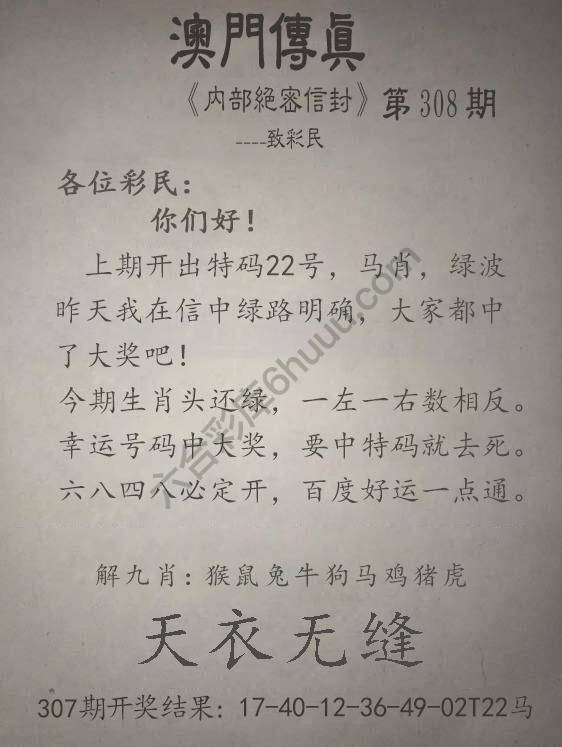 澳門傳眞
《内部絕密信封》第308期
----致彩民
各位彩民：
你们好！
上期开出特码22号，马肖，绿波
昨天我在信中绿路明确，大家都中
了大奖吧！
今期生肖头还绿，一左一右数相反。
幸运号码中大奖，要中特码就去死。
六八四八必定开，百度好运一点通。
六合彩库6huuu.com
解九肖：猴鼠兔牛狗马鸡猪虎
天衣无缝
307期开奖结果：17-40-12-36-49-02T22马